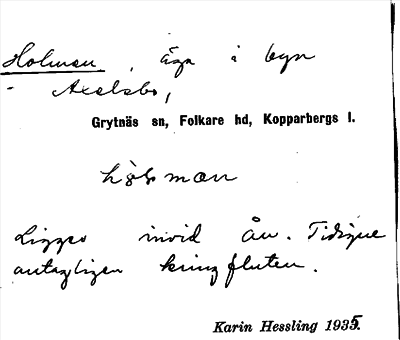 Holman, äga i byn
- Axelsbo,
Grytnäs sn, Folkare hd, Kopparbergs l.
Ligger invid ån. Tidigare
antagligen kringfluten.
Karin Hessling 1935.